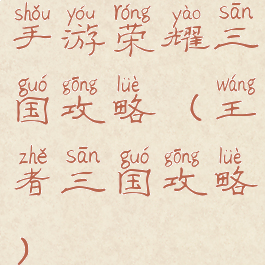 shǒu yóu róng yào sān
手游荣耀三
guó gōng lüè wáng
国攻略（王
zhě sān guó gōng lüè
者三国攻略
）